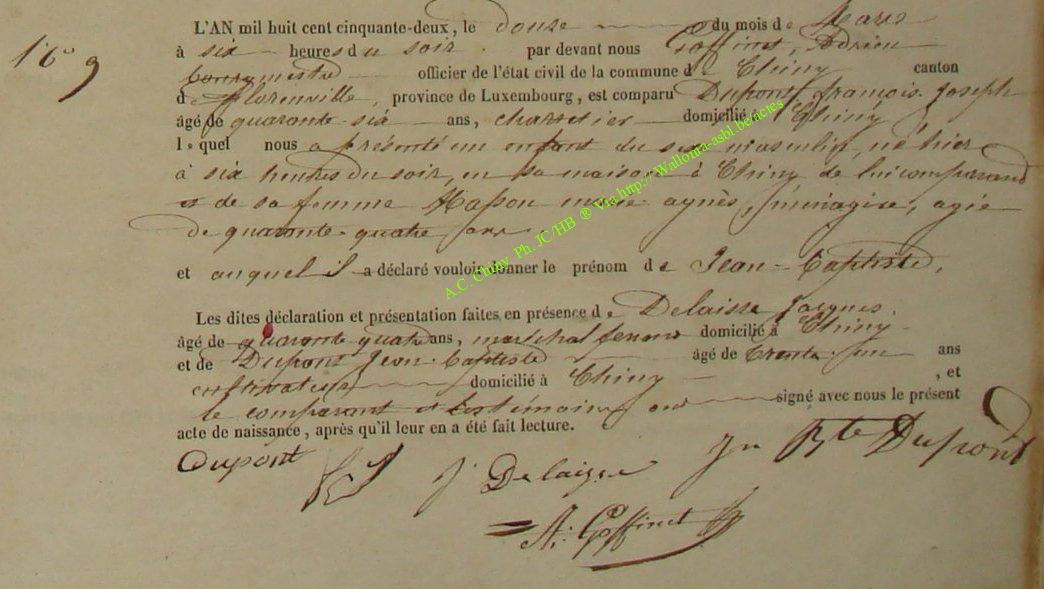 L'AN mil huit cent cinquante-deux, le douze du mois de Mars
à six heures du soir par devant nous Goffinet, Adrien
bourgmestre officier de l'état civil de la commune de Chiny canton
de Florenville, province de Luxembourg, est comparu Dupont françois Joseph
âgé de quarante-six ans, charretier domicilié à Chiny
lequel nous a présenté un enfant du sex masculin, né hier
à six heures du soir, en sa maison à Chiny de lui comparand
et de sa femme Hasson marie agnès, ménagère, agée
de quarante-quatre ans.
et auquel il a déclaré vouloir donner le prénom de Jean-Baptiste.
Les dites déclaration et présentation faites en présence de Delaisse Jacques
âgé de quarante quatre ans, marechal ferrant domicilié à Chiny
et de Dupont Jean-Baptiste âgé de trente-un ans
cultivateur domicilié à Chiny, et
le comparant et les témoins ont signé avec nous le présent
acte de naissance, après qu'il leur en a été fait lecture.
Dupont J Delaisse Jn Bte Dupont
A. Goffinet
A.C. Chiny Ph. JC/HB ® Via http://Wallonia-asbl.be/actes